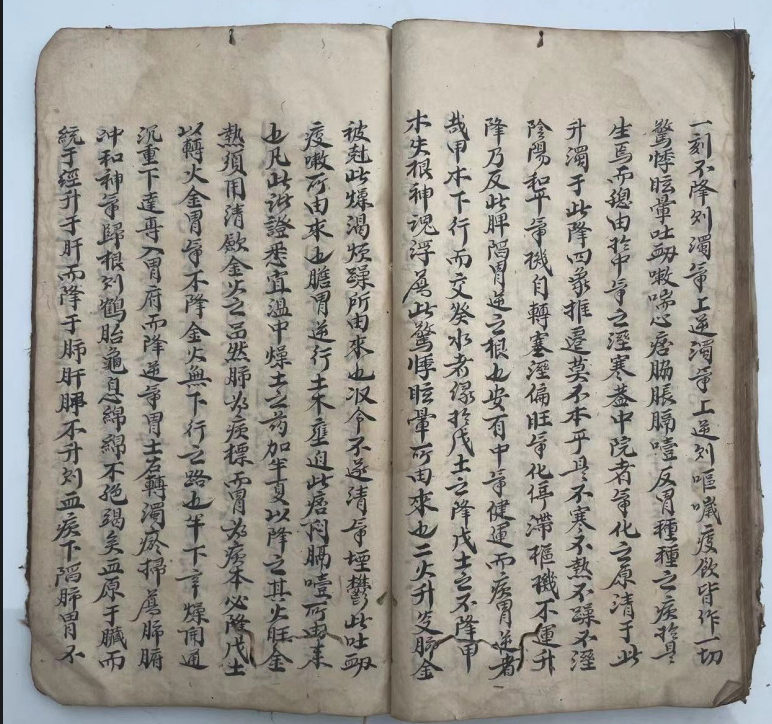 一刻不降则濁氣上逆濁氣上逆则嘔噦痰飲皆作一切
驚悸眩暈吐衂嗽喘心痞脇脹膈噎反胃種種之疾於是
生焉而總由於中氣之溼寒葢中脘者氣化之原清于此
升濁于此降四象推遷莫不本乎是不寒不熱不躁不溼
陰陽和平氣機自轉寒溼偏旺氣化停滯樞機不運升
降乃反此脾陷胃逆之根也安有中氣健運而病胃逆者
哉甲木下行而交癸水者緣於戊土之降戊土之不降甲
木失根神魂浮蕩此驚悸眩暈所由來也二火升炎肺金
被尅此燥渴煩躁所由來也收令不遂清氣堙鬱此吐衂
痰嗽所由來也膽胃逆行土木壅迫此痞悶膈噎所由來
也凡此諸證悉宜溫中燥土之药加半夏以降之其火旺金
熱須用清歛金火之品然肺为病標而胃为病本必降戊土
以轉火金胃氣不降金火無下行之路也半下辛燥開通
沉重下達專入胃府而降逆氣胃土右轉濁瘀掃蕩肺腑
冲和神氣歸根则鶴胎龜息綿綿不絕竭矣血原于臟而
統于經升于肝而降于肺肝脾不升则血病下陷肺胃不